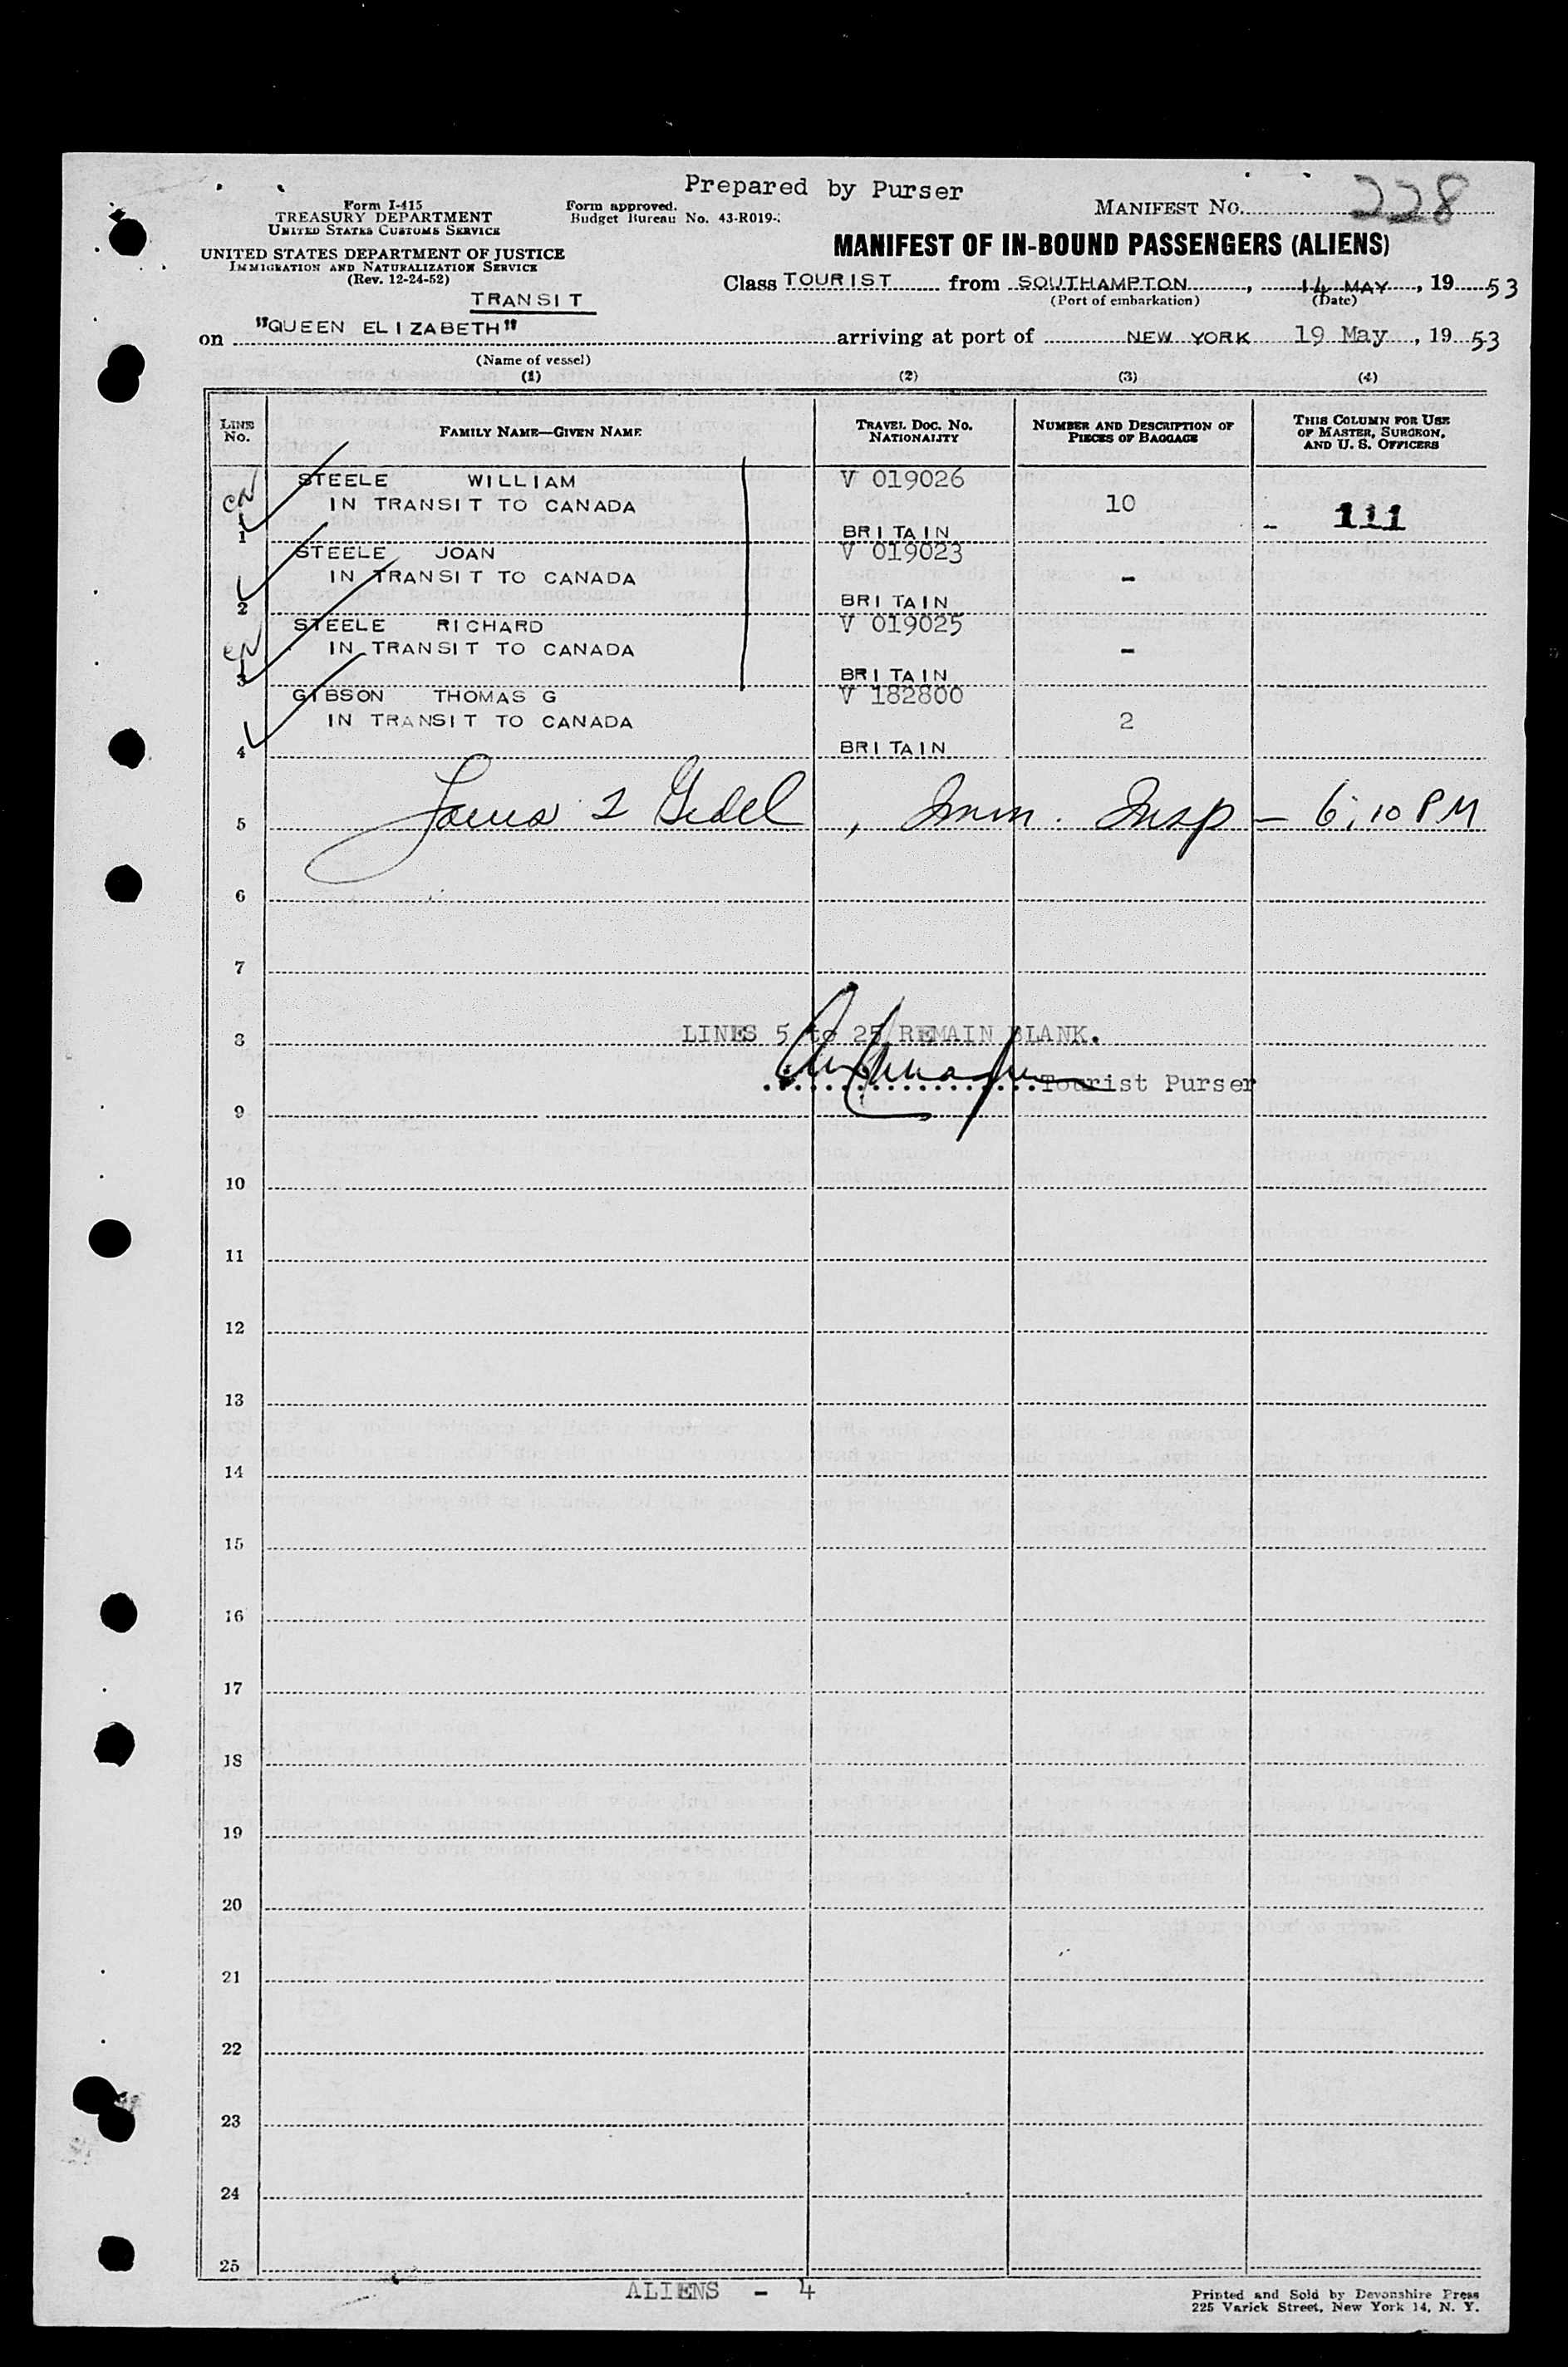 Prepared by Purser
Form I-415
TREASURY DEPARTMENT
UNITED STATES CUSTOMS SERVICE
Form approved.
Budget Bureau No. 43-R019-
MANIFEST NO. 228
UNITED STATES DEPARTMENT OF JUSTICE
IMMIGRATION AND NATURALIZATION SERVICE
(Rev. 12-24-52)
MANIFEST OF IN-BOUND PASSENGERS (ALIENS)
Class TOURIST from SOUTHAMPTON, 14 MAY, 19 53
(Port of embarkation) (Date)
TRANSIT
on "QUEEN ELIZABETH" arriving at port of NEW YORK 19 May, 19 53
(Name of vessel)
(1) (2) (3) (4)
LINE NO.
FAMILY NAME—GIVEN NAME
TRAVEL DOC. NO. NATIONALITY
NUMBER AND DESCRIPTION OF PIECES OF BAGGAGE
THIS COLUMN FOR USE OF MASTER, SURGEON, AND U. S. OFFICERS
STEELE WILLIAM V 019026
IN TRANSIT TO CANADA 10 - 111
1 BRITAIN
STEELE JOAN V 019023
IN TRANSIT TO CANADA -
2 BRITAIN
STEELE RICHARD V 019025
IN TRANSIT TO CANADA -
3 BRITAIN
GIBSON THOMAS G V 182800
IN TRANSIT TO CANADA 2
4 BRITAIN
5 , Imm. Insp - 6:10 PM
6
7
8 LINES 5 to 25 REMAIN BLANK.
Tourist Purser
9
10
11
12
13
14
15
16
17
18
19
20
21
22
23
24
25
ALIENS - 4
Printed and Sold by Devonshire Press
225 Varick Street, New York 14, N. Y.